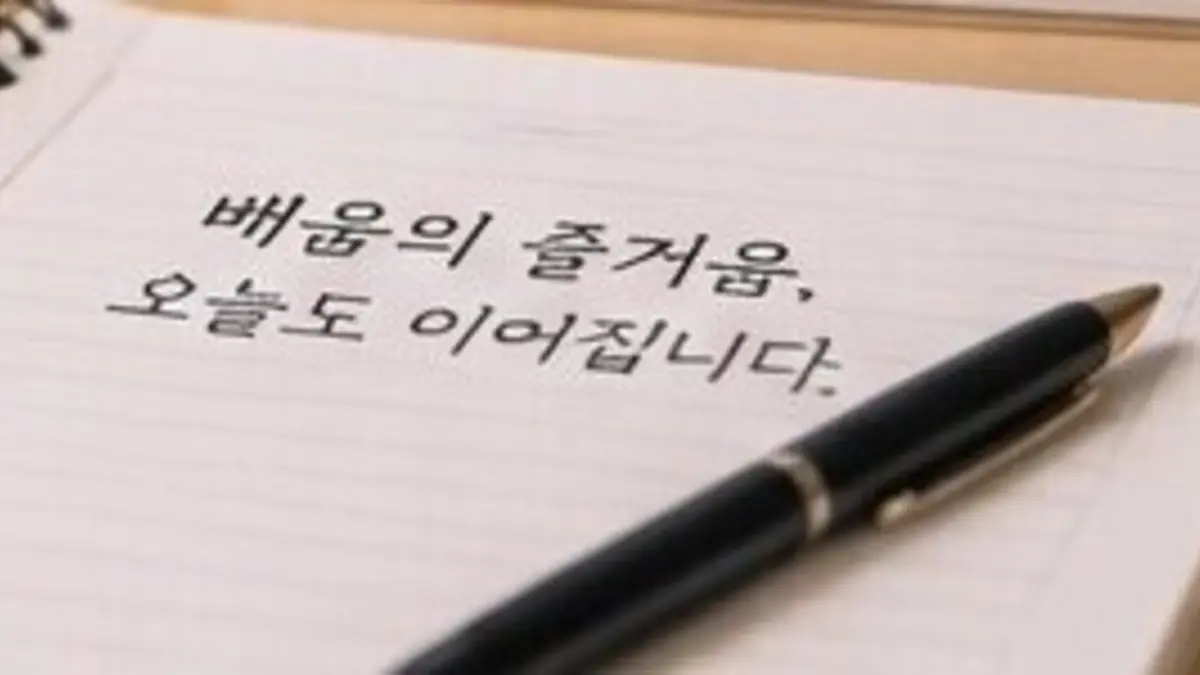 배움의 즐거움,
오늘도 이어집니다.